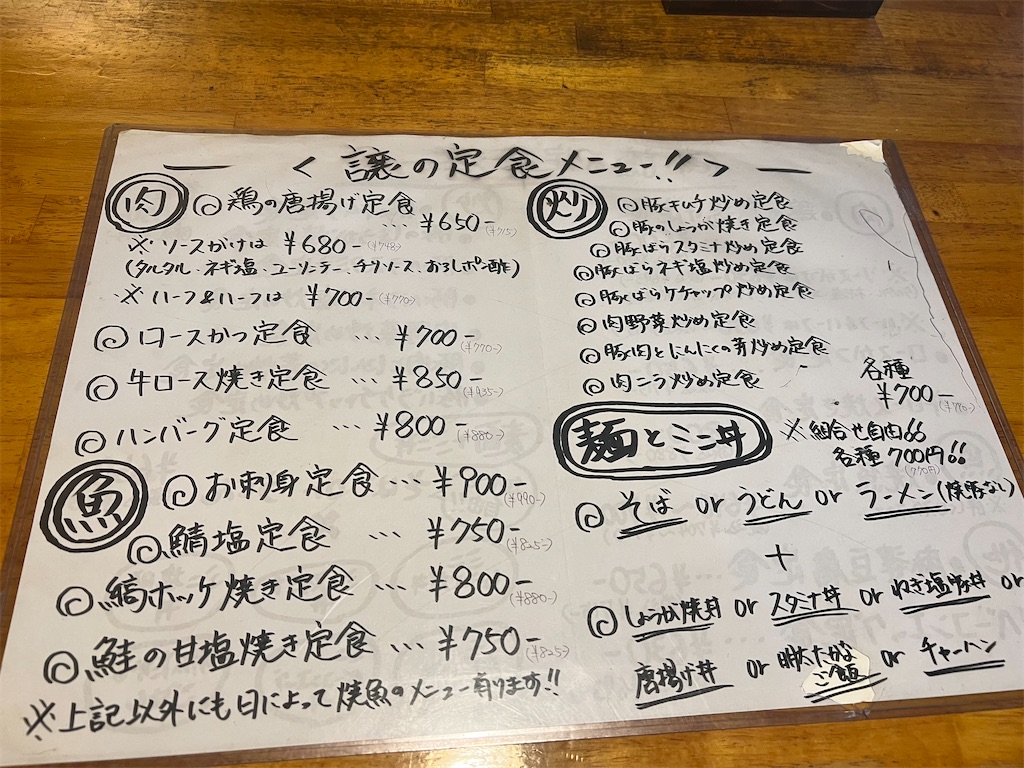 < 譲の定食メニュー!! >
肉
◎鶏の唐揚げ定食
… ¥650-(¥715)
※ソースがけは ¥680-(¥748)
(タルタル・ネギ塩・ユーリンチー・チリソース・おろしポン酢)
※ハーフ&ハーフは ¥700-(¥770)
◎ロースかつ定食 … ¥700-(¥770-)
◎牛ロース焼き定食 … ¥850-(¥935-)
◎ハンバーグ定食 … ¥800-(¥880-)
魚
◎お刺身定食 … ¥900-(¥990-)
◎鯖塩定食 … ¥750-(¥825-)
◎縞ホッケ焼き定食 … ¥800-(¥880-)
◎鮭の甘塩焼き定食 … ¥750-(¥825-)
※上記以外にも日によって焼魚のメニュー有ります!!
炒
◎豚キムチ炒め定食
◎豚のしょうが焼き定食
◎豚ばらスタミナ炒め定食
◎豚ばらネギ塩炒め定食
◎豚ばらケチャップ炒め定食
◎肉野菜炒め定食
◎豚肉とにんにくの芽炒め定食
◎肉ニラ炒め定食
各種
¥700-(¥770-)
麺とミニ丼
※組合せ自由!!
各種700円!!
(770円)
◎そば or うどん or ラーメン(焼豚なし)
+
◎しょうが焼丼 or スタミナ丼 or ねぎ塩豚丼 or
唐揚げ丼 or 明太たかなご飯 or チャーハン